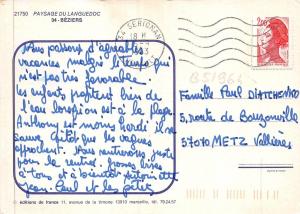 21750 PAYSAGE DU LANGUEDOC
34 - BÉZIERS
34 SERIGNAN
18 H
2,00
B51964
Nous passons d'agréables
vacances malgré le temps qui
n'est pas très favorable.
les enfants profitent bien de
l'eau lorsqu'on est à la plage
Anthony est moins hardi il se
sauve dès que les vagues
approchent. Nous rentrerons juste
pour la rentrée. grosses bises
à tous et à bientôt
Jean Paul et les petits
Famille Paul DIATCHENKO
5, route de Bouzonville
57070 METZ Vallières
éditions de france 11, avenue de la timone 13010 marseille, tél. 79.24.57